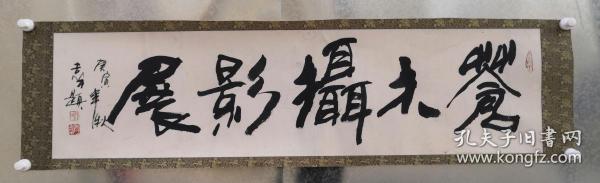 蒼未攝影展
庚寅年秋
題
孔夫子旧书网
www.kongfz.com